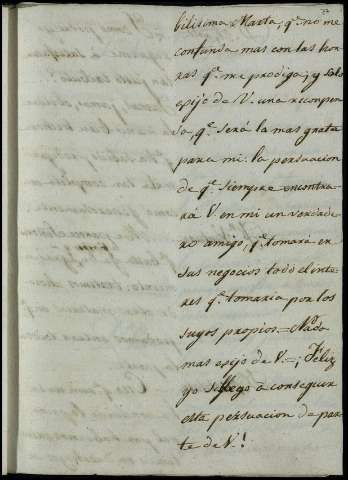 bilisima Marta; q.e no me
confunda mas con las hon-
ras q.e me prodiga; y solo
exijo de V. una recompen-
sa, q.e será la mas grata
para mi: la persuacion
de q.e siempre encontra-
rá V. en mi un verdade-
ro amigo, q.e tomará en
sus negocios todo el inte-
res q.e tomaria por los
suyos propios.= Nada
mas exijo de V.=¡ Feliz
yo si llego à conseguir
esta persuacion de par-
te de V.!